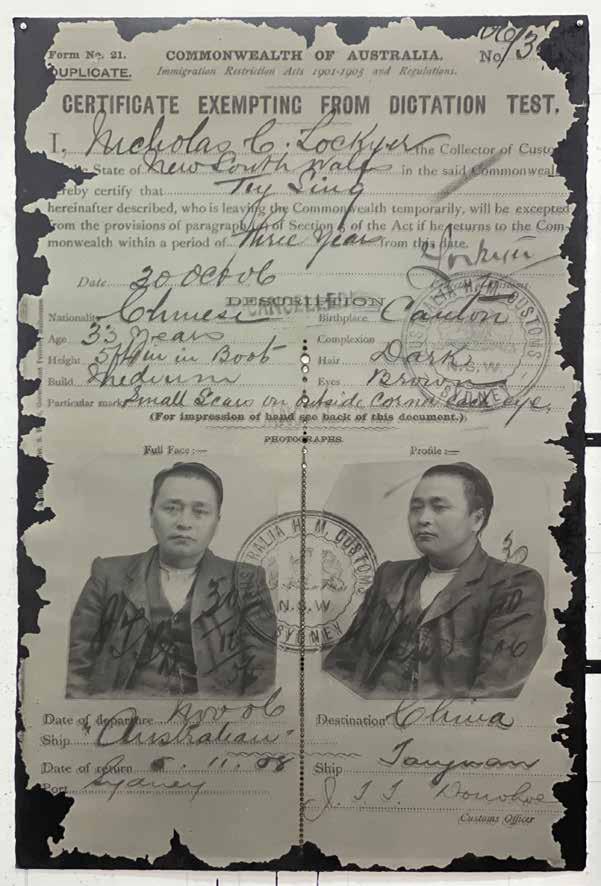 Form No. 21.
COMMONWEALTH OF AUSTRALIA.
No
DUPLICATE.
Immigration Restriction Acts 1901-1905 and Regulations.
CERTIFICATE EXEMPTING FROM DICTATION TEST.
I, Nicholas C. Lockyer the Collector of Custo
State of New South Wales in the said Commonweal
ereby certify that Sing
hereinafter described, who is leaving the Commonwealth temporarily, will be excepted
from the provisions of paragraph of Section of the Act if he returns to the Com-
monwealth within a period of three years from this date.
Date 30 Oct 06
DESCRIPTION
CANCELLED
Nationality Chinese Birthplace Canton
Age 33 years Complexion
Height in Boots Hair Dark
Build Medium Eyes Brown
Particular marks Small Scars on outside corner each eye,
(For impression of hand see back of this document.)
AUSTRALIA H. M. CUSTOMS
N.S.W
SYDNEY
PHOTOGRAPHS.
Full Face:— Profile:—
AUSTRALIA H. M. CUSTOMS
N.S.W
SYDNEY
30
10
06
30
06
Date of departure Nov 06 Destination China
Ship "Australian"
Date of return 5.11.08 Ship Taiyuan
Port Sydney J. T. T. Donohoe
Customs Officer